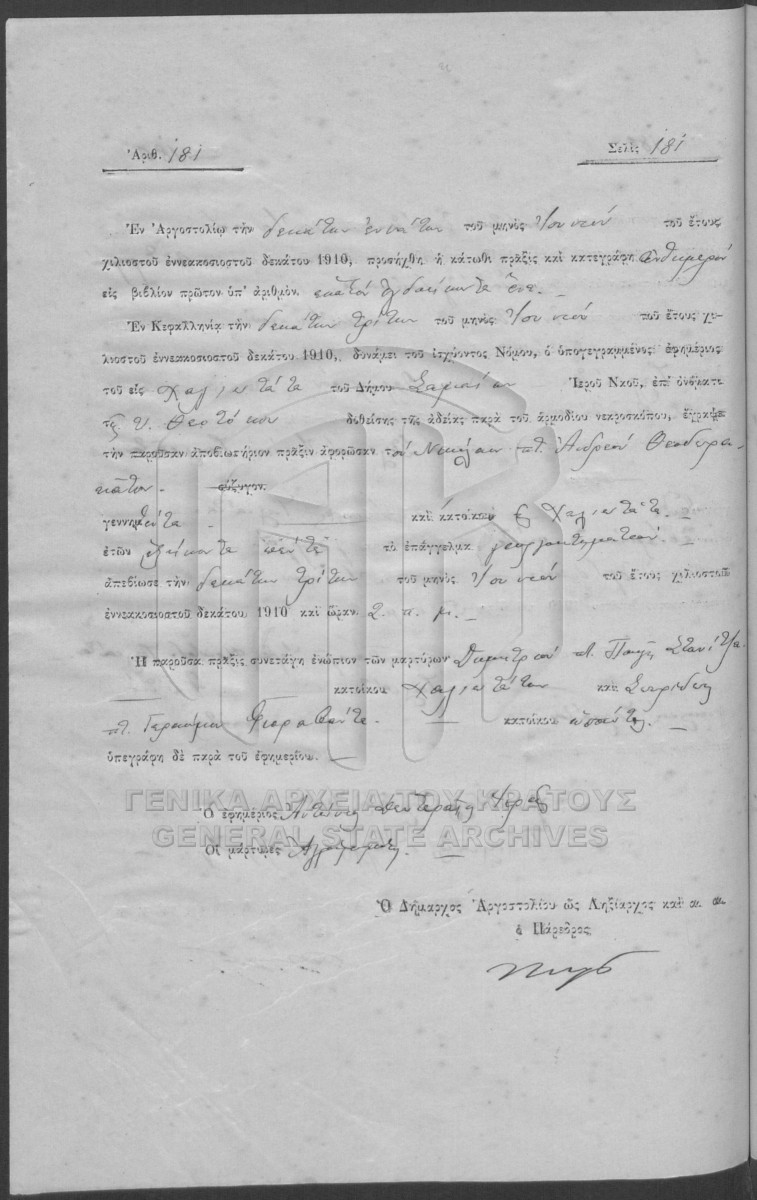 Ἀριθ. 181
Σελὶς 181
Ἐν Ἀργοστολίῳ τὴν δεκάτην ἐννάτην τοῦ μηνὸς Ἰουνίου τοῦ ἔτους
χιλιοστοῦ ἐννεακοσιοστοῦ δεκάτου 1910, προσήχθη ἡ κάτωθι πρᾶξις καὶ κατεγράφη αὐθημερόν
εἰς βιβλίον πρῶτον ὑπ' ἀριθμὸν. ἑκατόν ὀγδοήκοντα ἕνα. —
Ἐν Κεφαλληνίᾳ τὴν δεκάτην τρίτην τοῦ μηνὸς Ἰουνίου τοῦ ἔτους χι-
λιοστοῦ ἐννεακοσιοστοῦ δεκάτου 1910, δυνάμει τοῦ ἰσχύοντος Νόμου, ὁ ὑπογεγραμμένος ἐφημέριος
τοῦ εἰς Χαλιωτάτα τοῦ Δήμου Σαμαίων Ἱεροῦ Ναοῦ, ἐπ' ὀνόματι
τῆς Υ. Θεοτόκου δοθείσης τῆς ἀδείας παρὰ τοῦ ἁρμοδίου νεκροσκόπου, ἔγραψε
τὴν παροῦσαν ἀποβιωτήριον πρᾶξιν ἀφορῶσαν τόν Νικόλαον ποτ. Ἀνδρέου Θεοδωρα-
κάτον — σύζυγον
γεννηθέντα — καὶ κατοίκου ἐς Χαλιωτάτα. —
ἐτῶν ἑξήκοντα πέντε τὸ ἐπάγγελμα γεωργοκτηματίου. —
ἀπεβίωσε τὴν δεκάτην τρίτην τοῦ μηνὸς Ἰουνίου τοῦ ἔτους χιλιοστοῦ
ἐννεακοσιοστοῦ δεκάτου 1910 καὶ ὥραν 2. π. μ. —
Ἡ παροῦσα πρᾶξις συνετάγη ἐνώπιον τῶν μαρτύρων Δημητρίου
— κατοίκου Χαλιωτάτων καὶ Σπυρίδων
ποτ. Γερασίμου — κατοίκου —
ὑπεγράφη δὲ παρὰ τοῦ ἐφημερίου. —
ΓΕΝΙΚΑ ΑΡΧΕΙΑ ΤΟΥ ΚΡΑΤΟΥΣ
Ὁ ἐφημέριος Ἀντώνιος Ἱερεὺς
GENERAL STATE ARCHIVES
Οἱ μάρτυρες Ἀγράμματοι. —
Ὁ Δήμαρχος Ἀργοστολίου ὡς Ληξίαρχος καὶ α. α.
ὁ Πάρεδρος